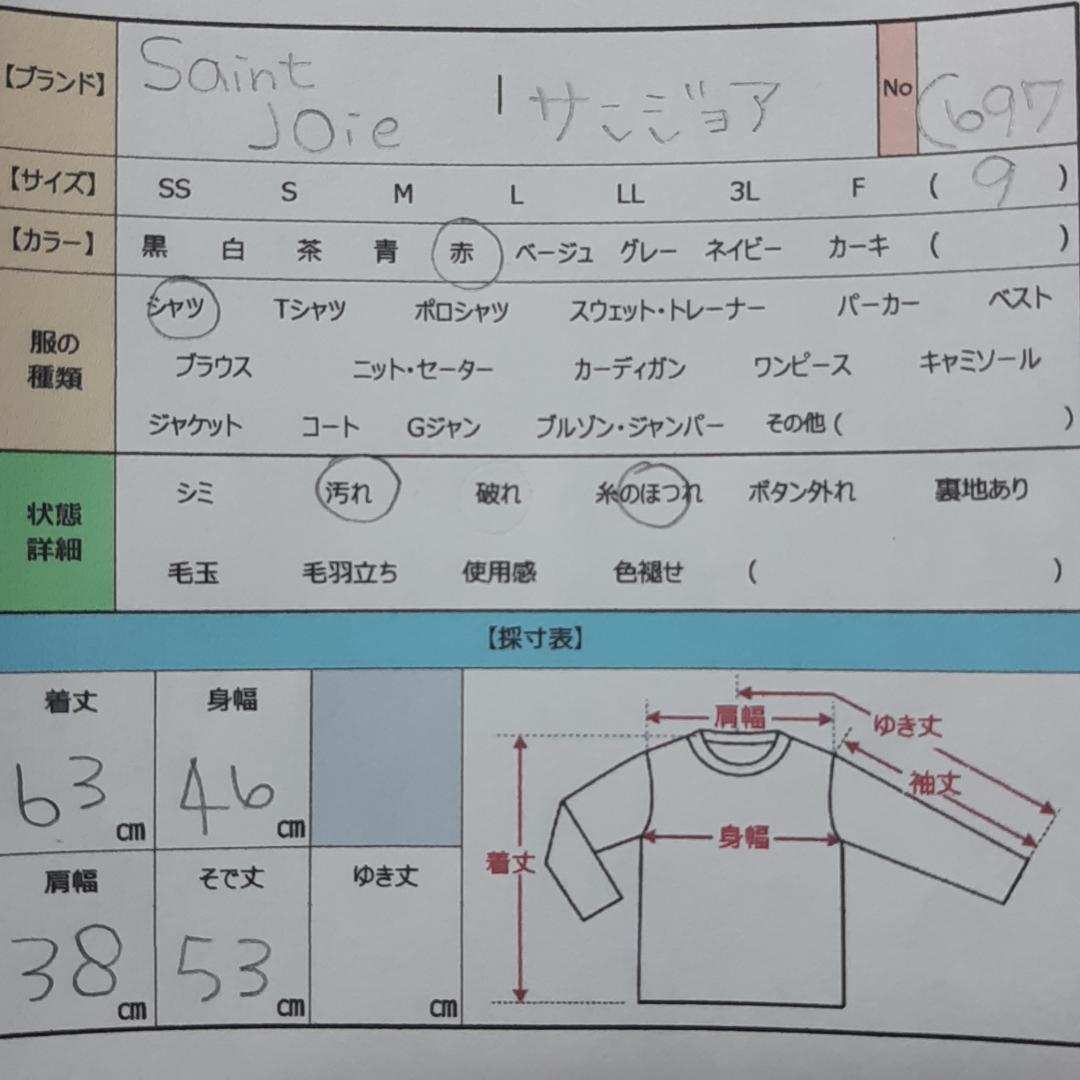 【ブランド】 Saint Joie | サンジョア No 6697
【サイズ】 SS S M L LL 3L F ( 9 )
【カラー】 黒 白 茶 青 赤 ベージュ グレー ネイビー カーキ ( )
服の種類
シャツ Tシャツ ポロシャツ スウェット・トレーナー パーカー ベスト
ブラウス ニット・セーター カーディガン ワンピース キャミソール
ジャケット コート Gジャン ブルゾン・ジャンパー その他 ( )
状態詳細
シミ 汚れ 破れ 糸のほつれ ボタン外れ 裏地あり
毛玉 毛羽立ち 使用感 色褪せ ( )
【採寸表】
着丈 身幅
63 cm 46 cm
肩幅 そで丈 ゆき丈
38 cm 53 cm cm
肩幅 ゆき丈
袖丈
身幅
着丈